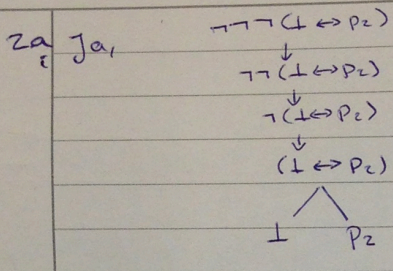 2a Ja, ¬¬¬(⊥ ↔ P₂)
i ↓
¬¬(⊥ ↔ P₂)
↓
¬(⊥ ↔ P₂)
↓
(⊥ ↔ P₂)
⊥ P₂